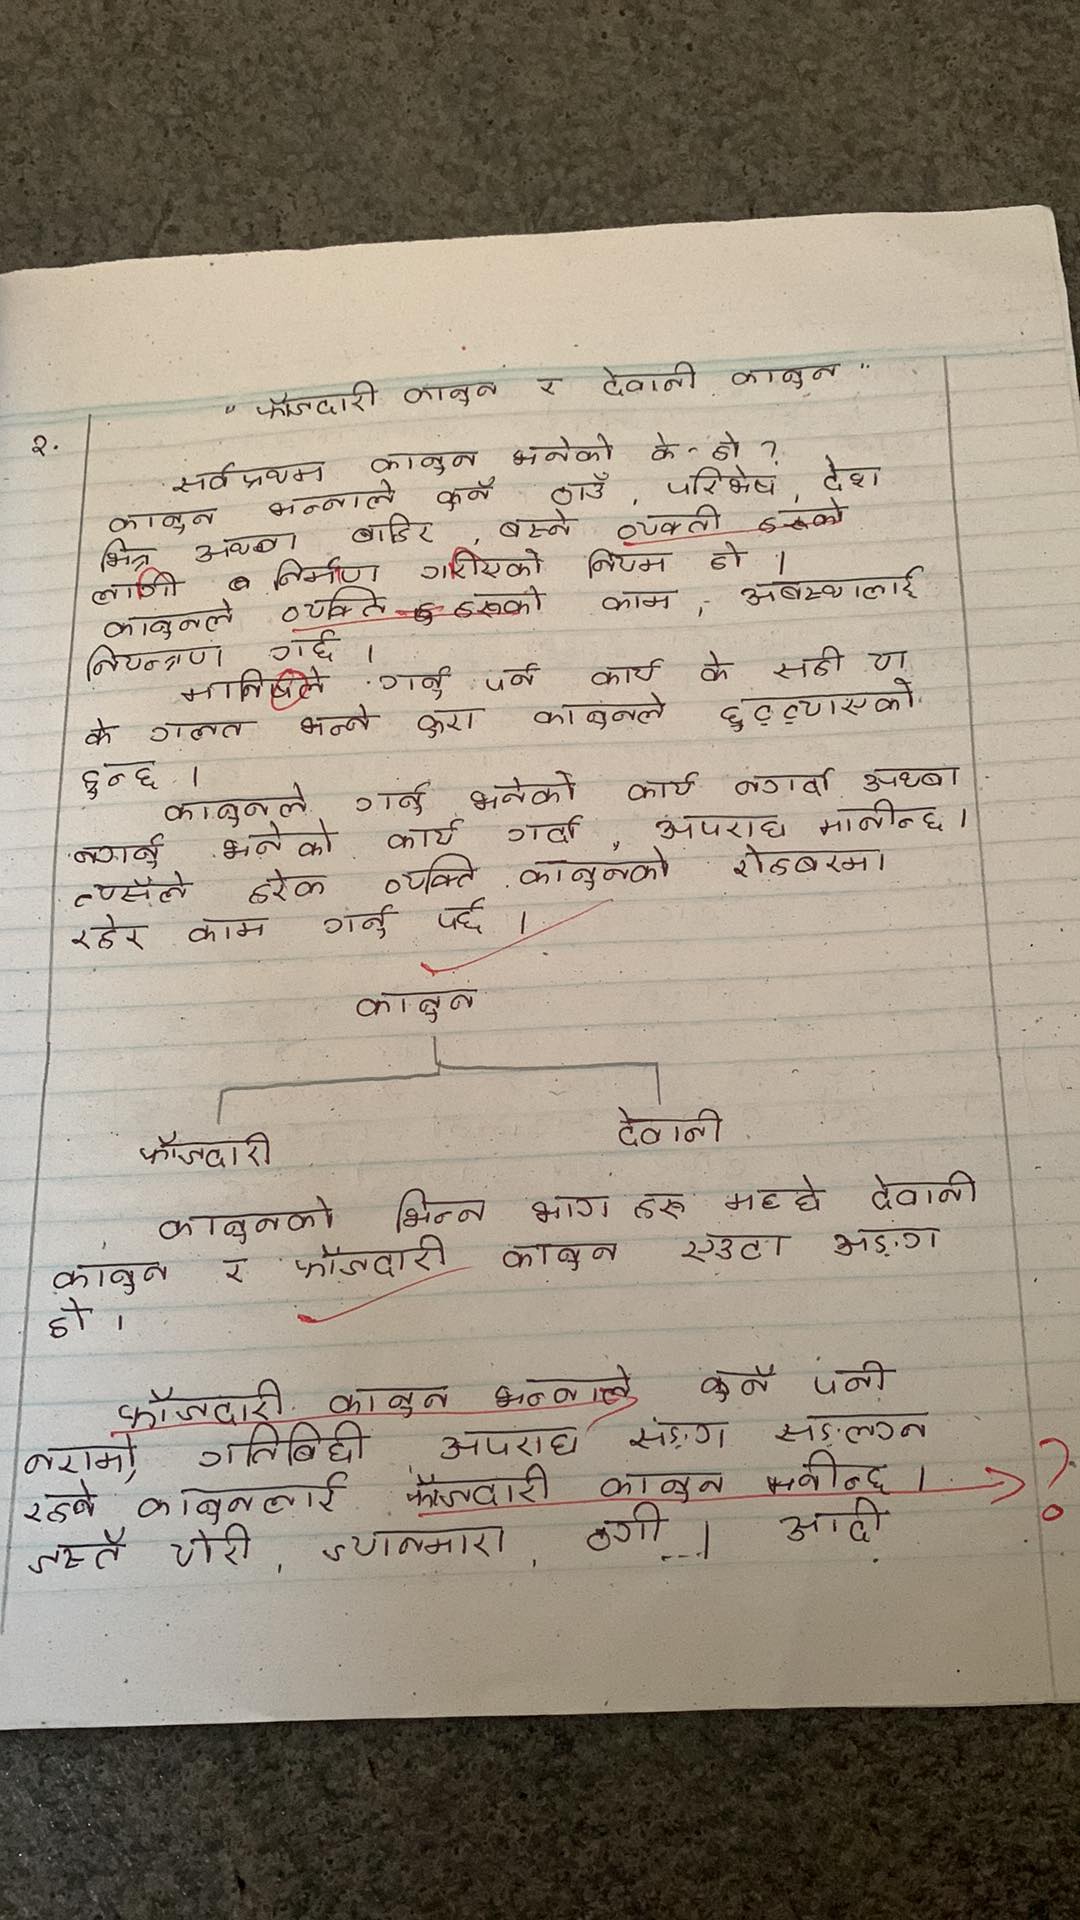 " फौजदारी कानुन र देवानी कानुन "
२.
सर्वप्रथम कानुन भनेको के हो ?
कानुन भन्नाले कुनै ठाउँ , परिभेष , देश
भित्र अथबा बाहिर , बस्ने व्यक्ती हरूको
लागी निर्माण गरीएको नियम हो ।
कानुनले व्यक्ति हरूको काम , अबस्थालाई
नियन्त्रण गर्छ ।
मानिषले गर्नु पर्ने कार्य के सही या
के गलत भन्ने कुरा कानुनले छुट्ट्याएको
हुन्छ ।
कानुनले गर्नु भनेको कार्य नगर्दा अथबा
नगर्नु भनेको कार्य गर्दा , अपराध मानीन्छ ।
त्यसैले हरेक व्यक्ति कानुनको रोहबरमा
रहेर काम गर्नु पर्छ ।
कानुन
फौजदारी देवानी
कानुनको भिन्न भाग हरू मध्धे देवानी
कानुन र फौजदारी कानुन एउटा अङ्ग
हो ।
फौजदारी कानुन भन्नाले कुनै पनी
नराम्रो गतिबिधी अपराध सङ्ग सङ्लग्न
रहने कानुनलाई फौजदारी कानुन भनीन्छ । ?
जस्तै चोरी , ज्यानमारा , ठगी ...। आदी